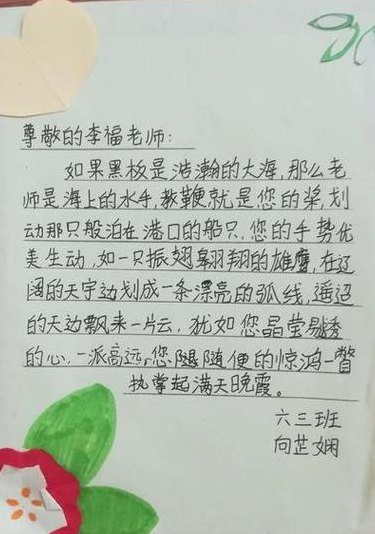 尊敬的李福老师：
如果黑板是浩瀚的大海,那么老
师是海上的水手,教鞭就是您的桨,划
动那只般泊在港口的船只,您的手势优
美生动,如一只振翅翱翔的雄鹰,在辽
阔的天宇边划成一条漂亮的弧线,遥远
的天边飘来一片云,犹如您晶莹剔透
的心,一派高远,您随便的惊鸿一瞥
执掌起满天晚霞。
六三班
向芷娴